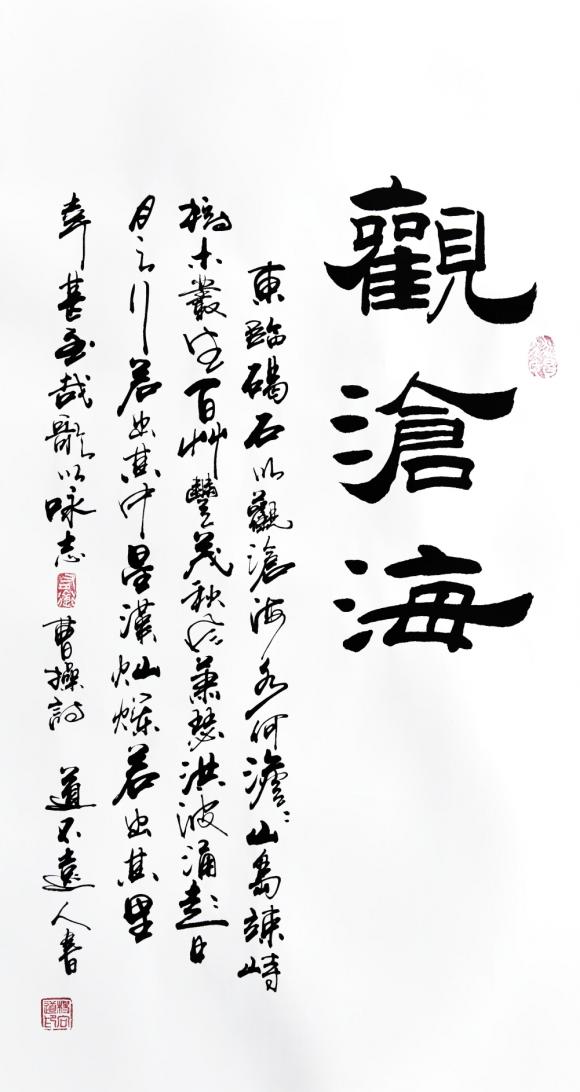 觀滄海
東臨碣石以觀滄海水何澹〻山島竦峙
樹木叢生百艸豐茂秋風蕭瑟洪波涌起日
月之行若出其中星漢灿爛若出其里
幸甚至哉歌以咏志 曹操詩 道不遠人書